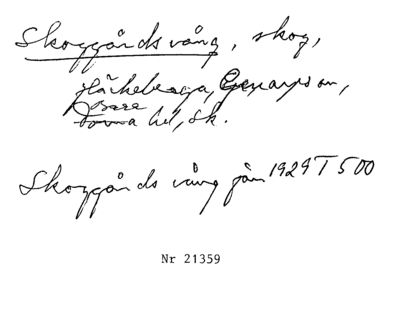 Skoggårds vång, skog,
Häckeberga, Genarps sn,
Bara
Torna hd, Sk.
Skoggårds vång jäu 1929 T 500
Nr 21359